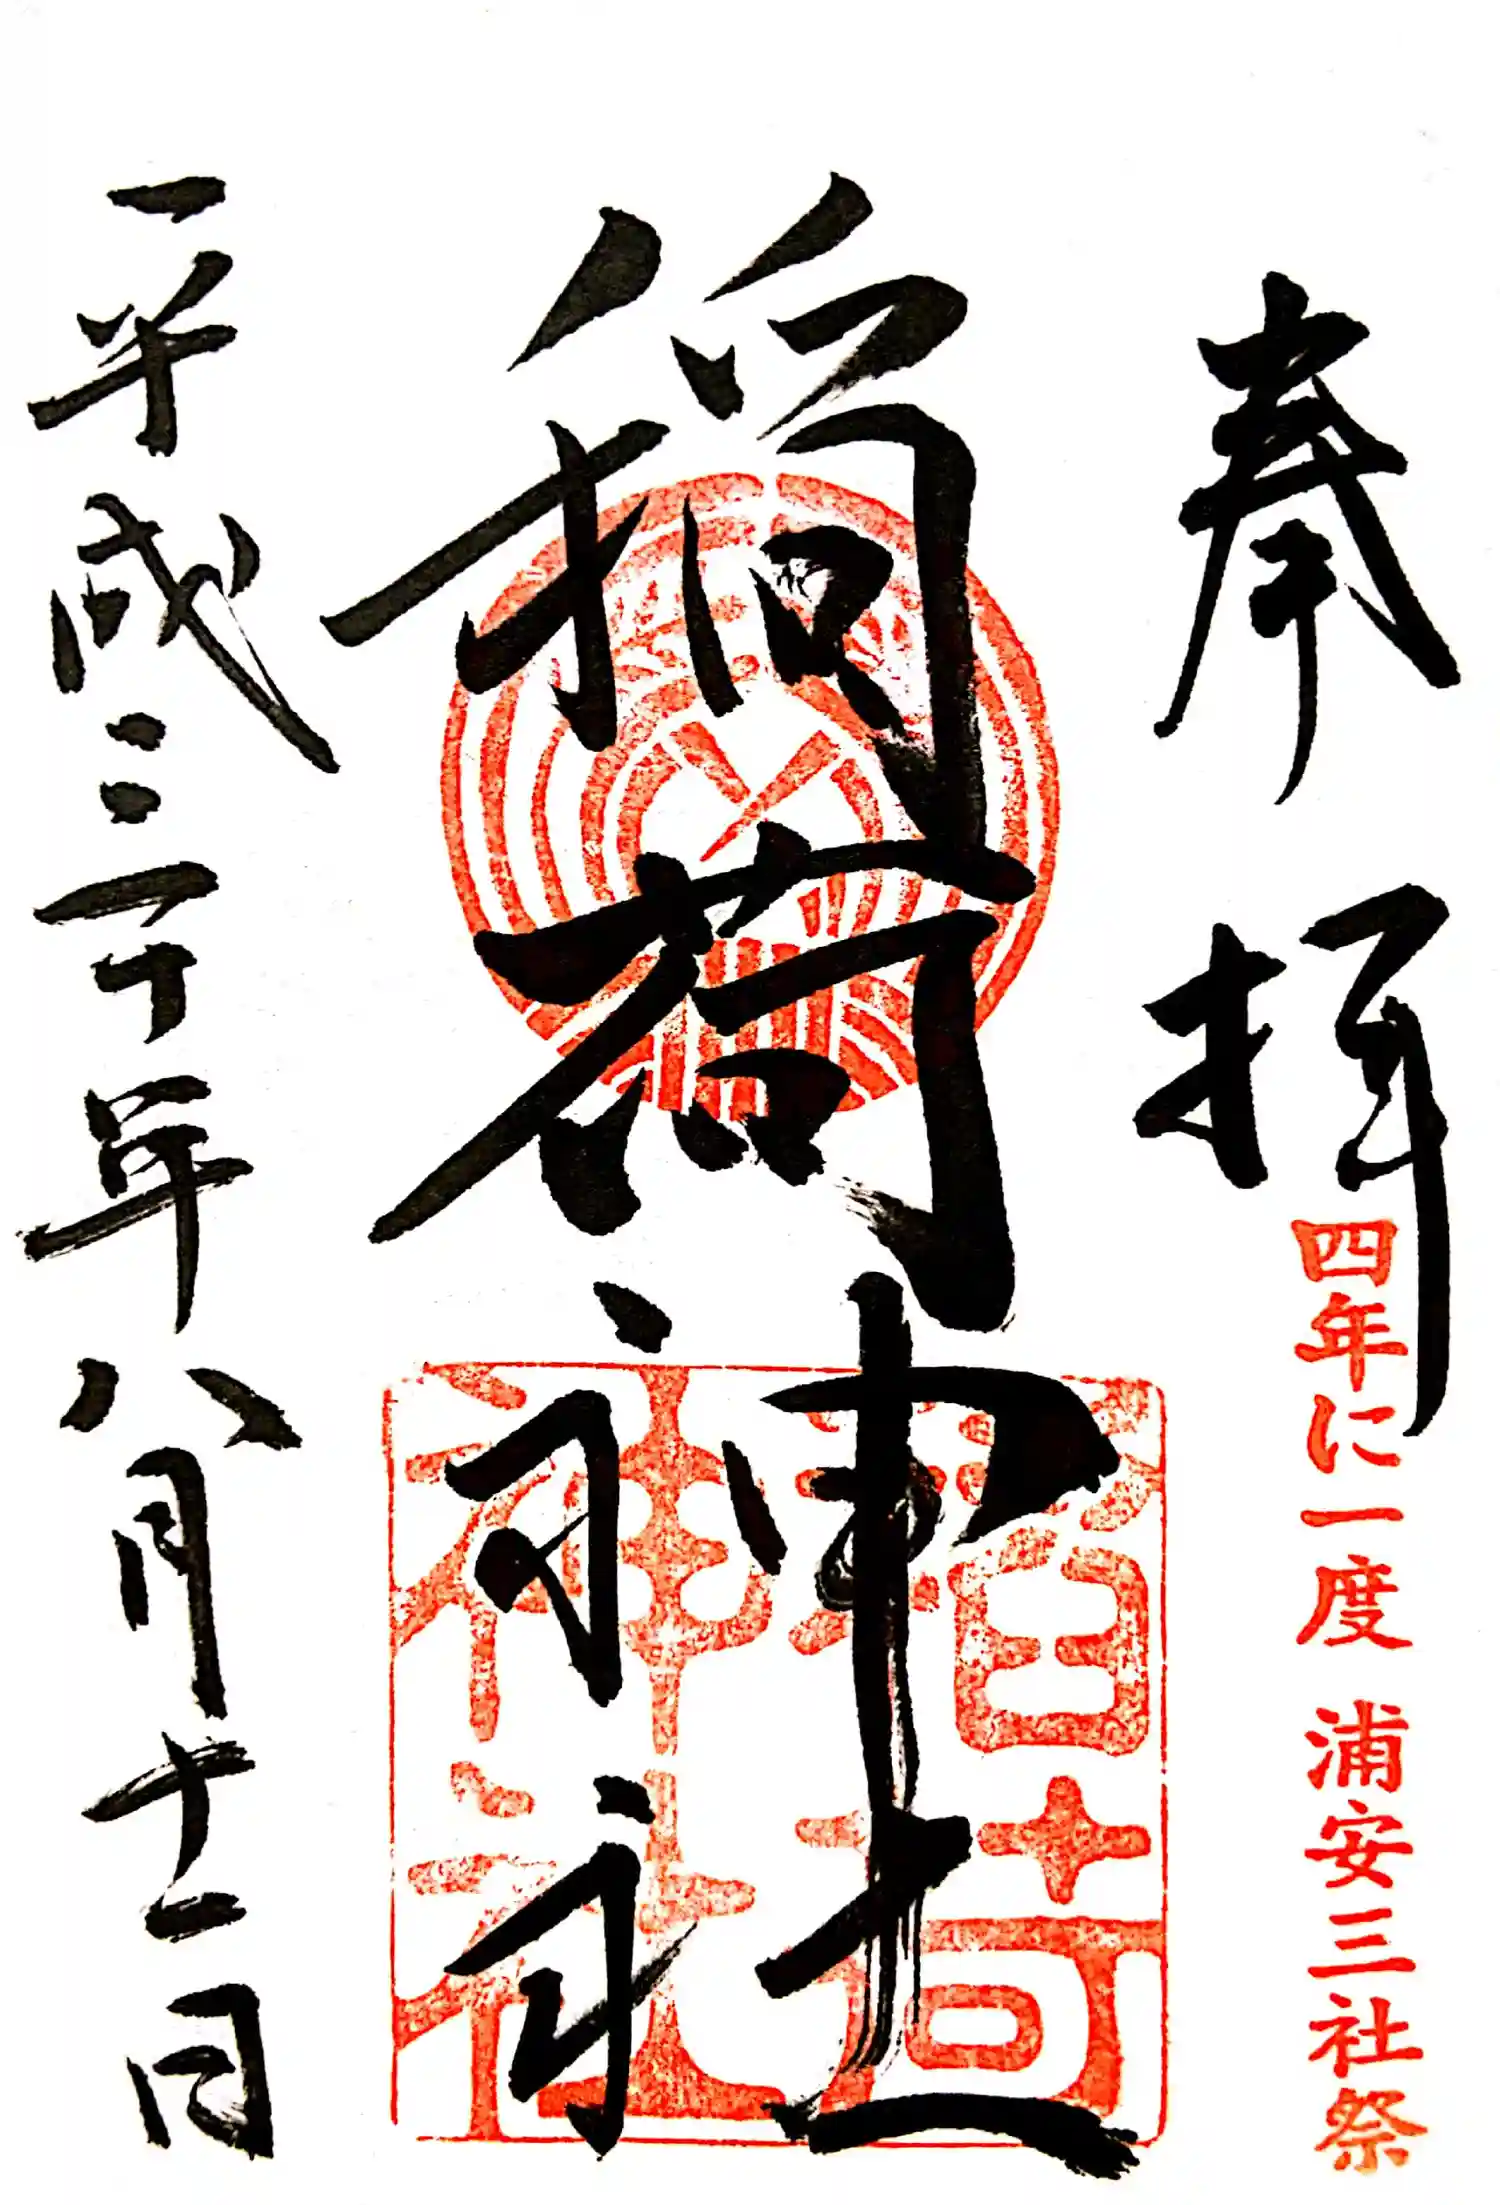 奉拝
四年に一度 浦安三社祭
稲荷神社
稲荷
神社
平成三十年八月十一日